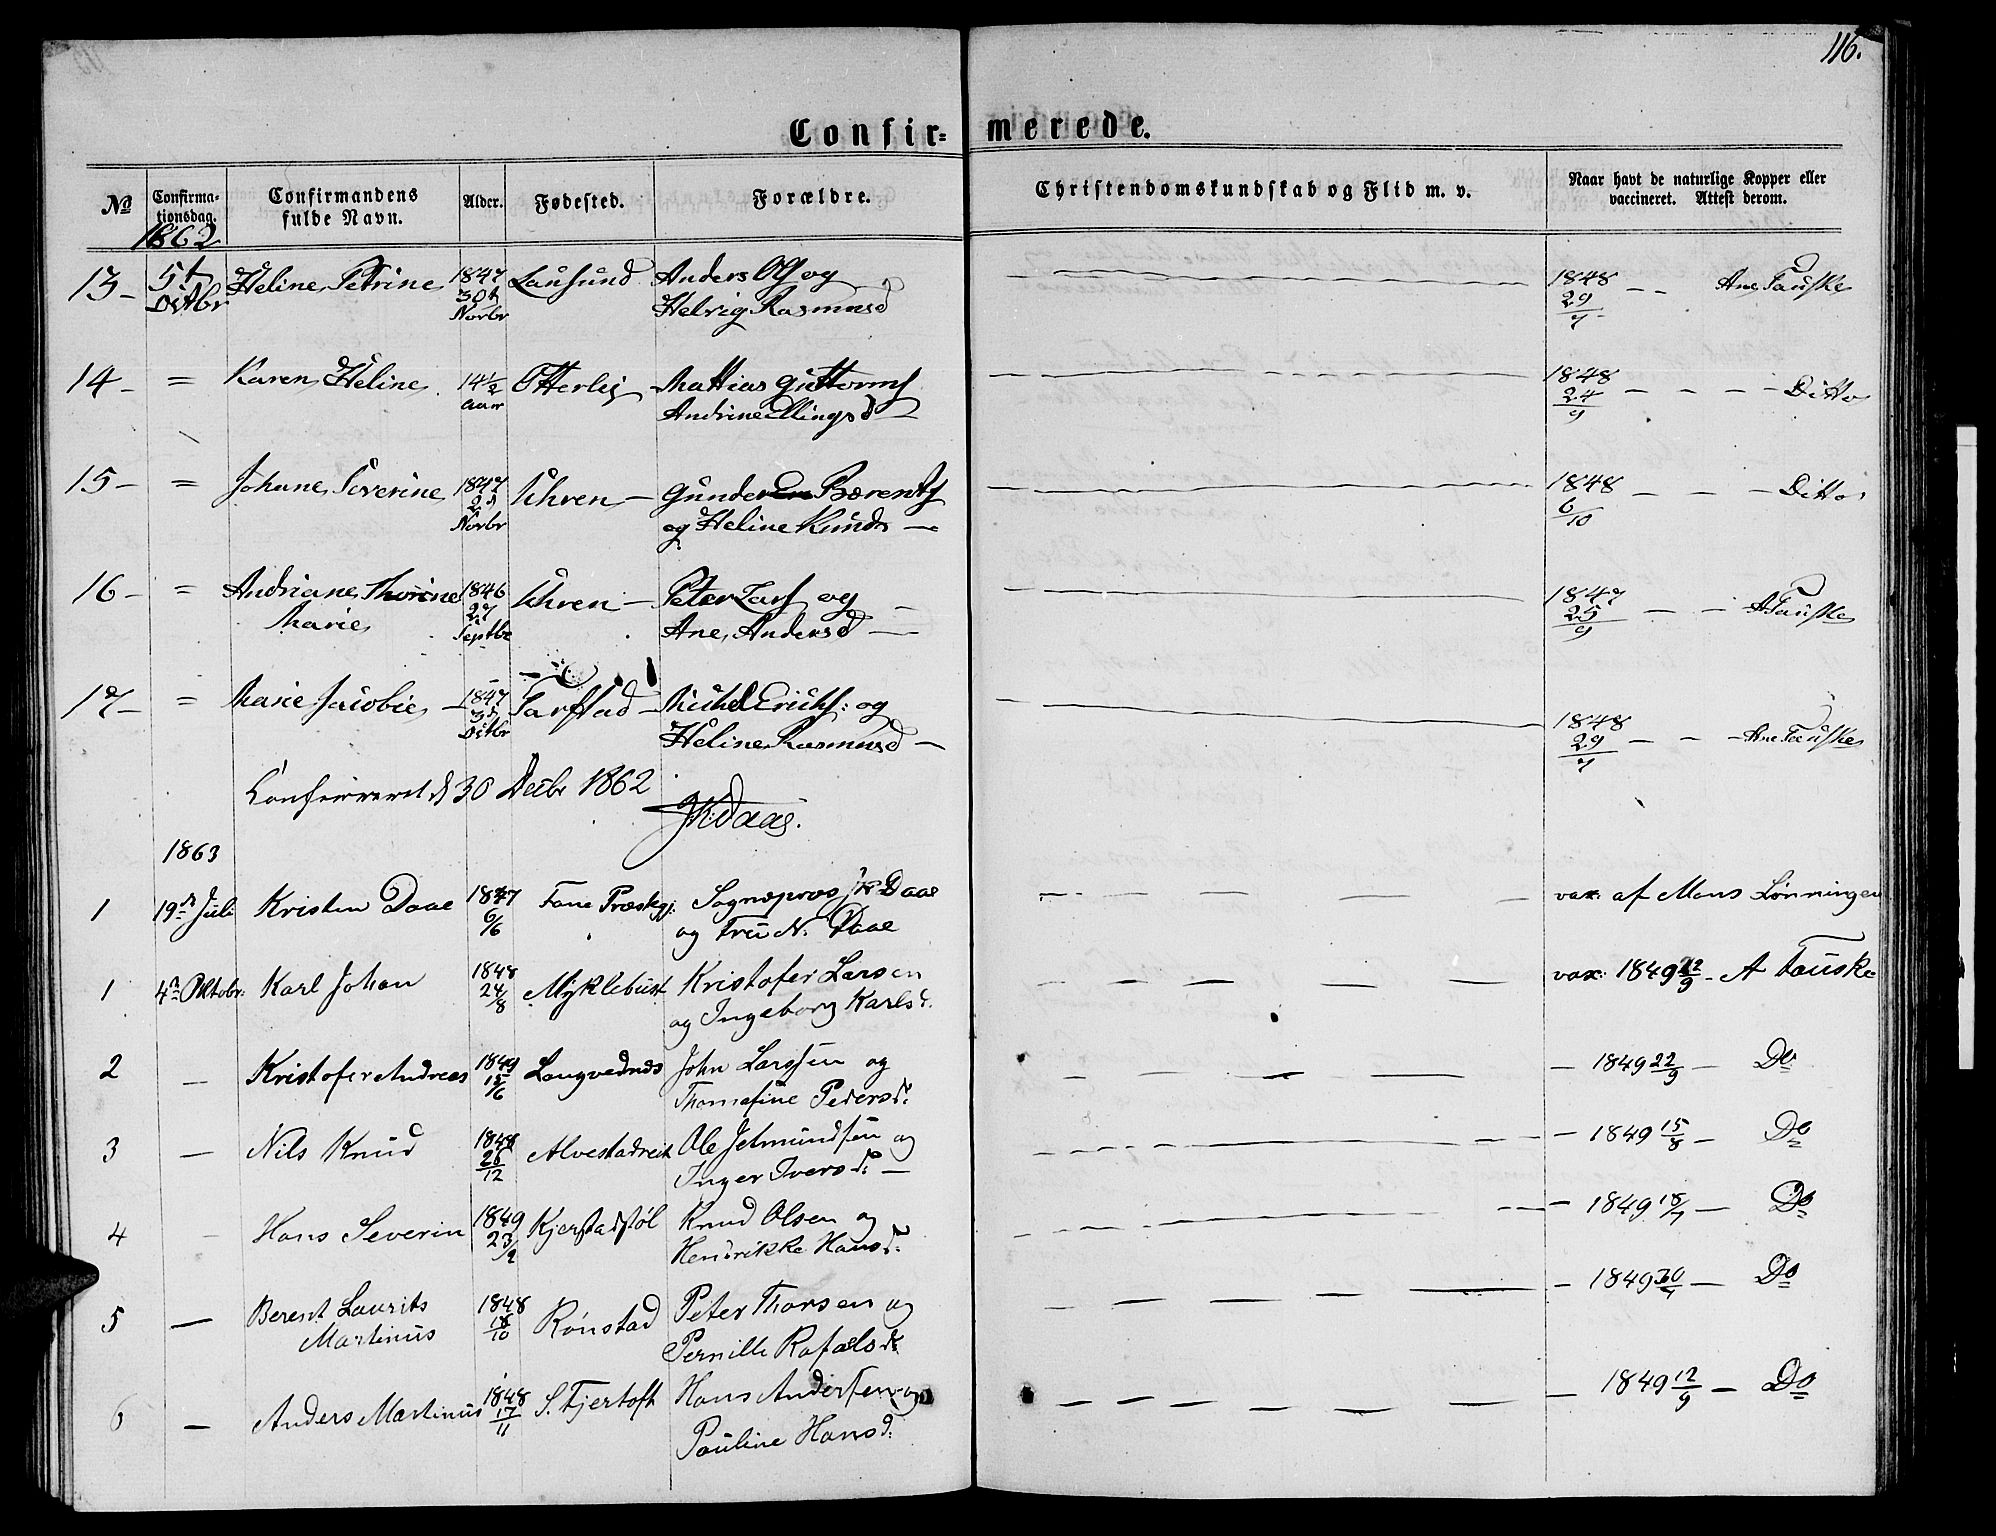 116.
Confirmerede.
No Confirmationsdag. Confirmandens fulde Navn. Alder. Fødested. Forældre. Christendomskundskab og Flid m. v. Naar havt de naturlige Kopper eller vaccineret. Attest derom.
1862
13 - 5t Octbr Heline Petrine 1847 30t Novbr Lausund Anders Ols og Helvig Rasmusd 1848 29/7 - - Ane Fauske
14 - = Karen Heline 14 1/2 aar Otterlei Mattias Guttorms Andrine Ellingsd - 1848 24/9 - - - - Ditto
15 - = Johane Severine 1847 2d Novbr Uhren - Gunder Bærents og Heline Knuds - 1848 6/10 - - - Ditto
16 - = Andriane Thorine Marie 1846 27 Septbr Uhren - Peter Lars og Ane Andersd - 1847 25/9 - - A Fauske
17 - = Marie Jacobie - 1847 3d Octbr Tarstad - Michel Erichs: og Heline Rasmusd - 1848 29/7 - - - Ane Fauske
Confereret d 30 Decbr 1862
JKDaae.
1863
1 19de Juli Kristen Daae 1847 6/6 Fane Præstegj: Sognepræs JK Daae og Fru N. Daae vax: af Mons Lønningen
1 4de Oktobr: Karl Johan 1848 24/8 Myklebust Kristofer Larsen og Ingeborg Karlsd. vax: 1849 22/9 - A Fauske
2 - Kristofer Andreas 1849 15/6 Longvednes John Larssen og Thomasine Pedersd: - 1849 22/9 - Do
3 - Nils Knud 1848 26/12 Alvestadreit Ole Jetmundsen og Inger Iversd: - - 1849 15/8 - Do
4 - Hans Severin 1849 23/2 Kjerstadstøl Knud Olsen og Hendrikke Hansd: - 1849 18/7 - Do
5 - Berent Laurits Martinus 1848 18/10 Rønstad Peter Thorsen og Pernille Rafaelsd: - 1849 30/7 - Do
6 - Anders Martinus 1848 17/11 S. Fjertoft Hans Andersen og Pauline Hansd: - 1849 12/9 - Do